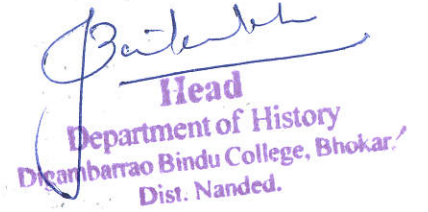 Head
Department of History
Digambarrao Bindu College, Bhokar.
Dist. Nanded.